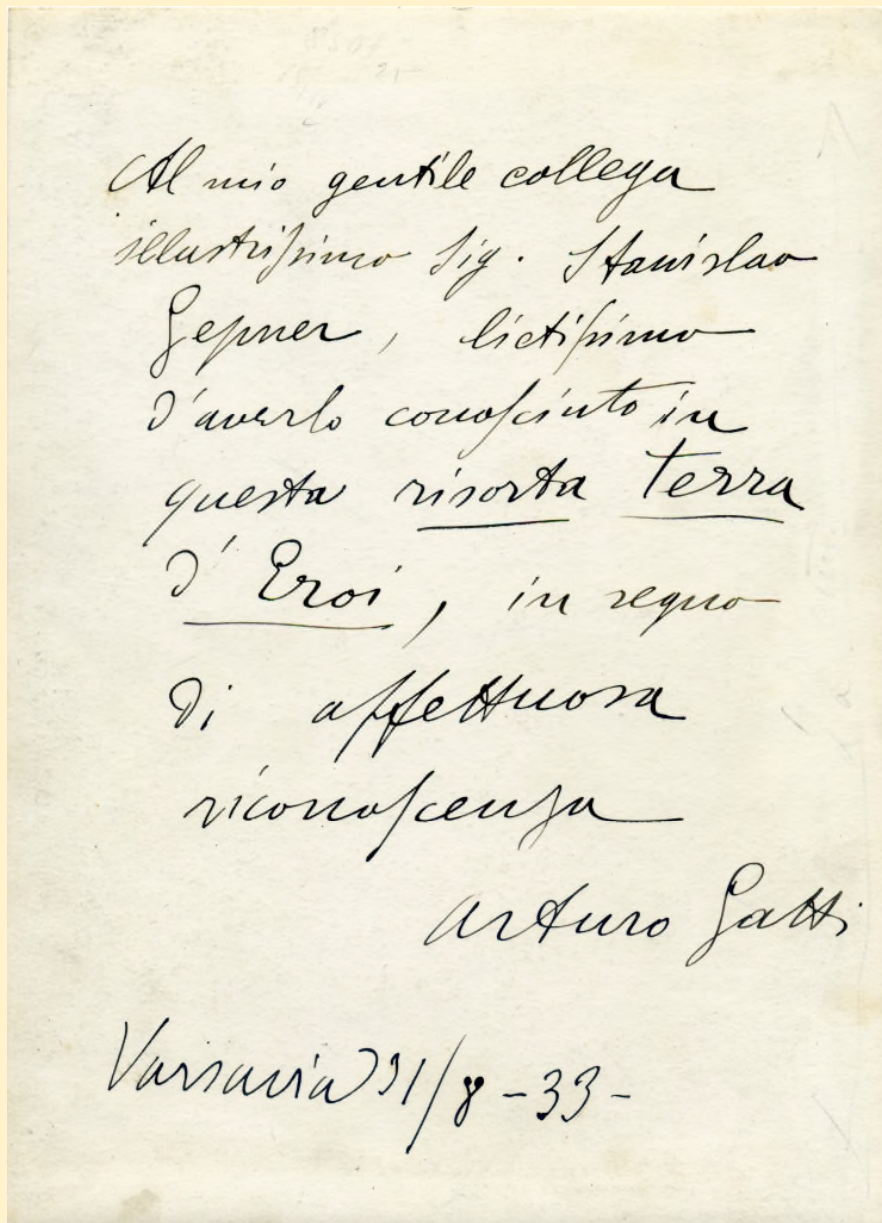 Al mio gentile collega
illustrissimo Sig. Stanislao
Gepner, lietissimo
d'averlo conosciuto in
questa risorta terra
d'Eroi, in segno
di affettuosa
riconoscenza
Arturo Gatti
Varsavia 31/8-33-